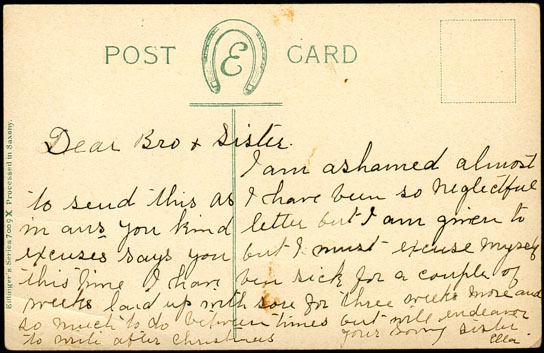 POST CARD
E
Ettlinger's Series 7009 X Processed in Saxony.
Dear Bro + Sister.
I am ashamed almost
to send this as I have been so neglectful
in ans you kind letter but I am given to
excuses says you but I must excuse myself
this time I have been sick for a couple of
weeks laid up with for three weeks more and
so much to do between times but will endeavor
to write after christmas your loving sister
Ella.